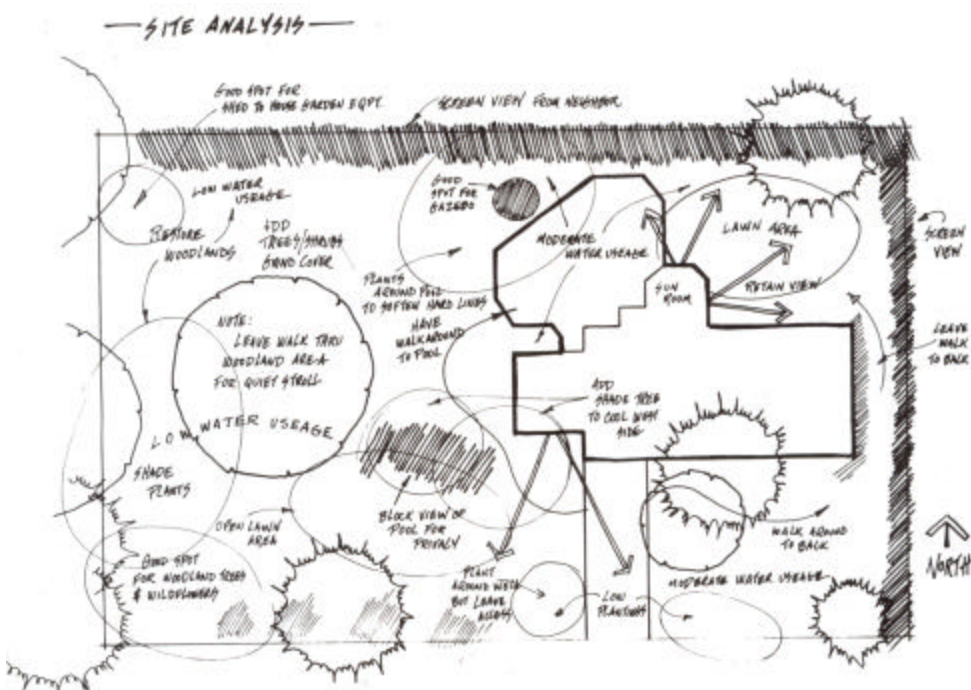 SITE ANALYSIS
GOOD SPOT FOR
SHED TO HOUSE GARDEN EQPT.
SCREEN VIEW FROM NEIGHBOR
LOW WATER
USEAGE
RESTORE
WOODLANDS
ADD
TREES/SHRUBS
GRND COVER
GOOD
SPOT FOR
GAZEBO
MODERATE
WATER USEAGE
LAWN AREA
SCREEN
VIEW
PLANTS
AROUND POOL
TO SOFTEN HARD LINES
SUN
ROOM
RETAIN VIEW
HAVE
WALKAROUND
TO POOL
LEAVE
WALK
TO BACK
NOTE:
LEAVE WALK THRU
WOODLAND AREA
FOR QUIET STROLL
ADD
SHADE TREE
TO COOL WEST
SIDE
LOW WATER USEAGE
SHADE
PLANTS
OPEN LAWN
AREA
BLOCK VIEW OF
POOL FOR
PRIVACY
WALK AROUND
TO BACK
NORTH
GOOD SPOT
FOR WOODLAND TREES
& WILDFLOWERS
PLANT
AROUND WELL
BUT LEAVE
ACCESS
LOW
PLANTINGS
MODERATE WATER USEAGE